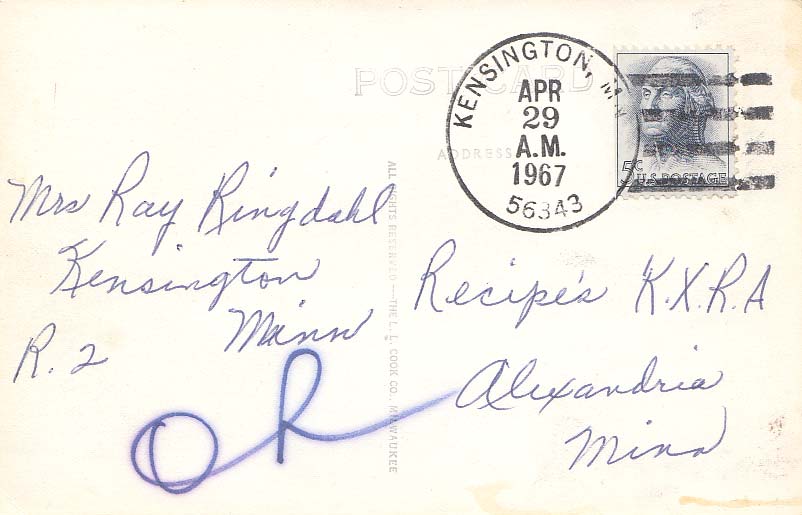 POST CARD
ADDRESS
KENSINGTON, M
APR
29
A.M.
1967
56343
5¢
U.S. POSTAGE
Mrs Ray Ringdahl
Kensington
Minn
R. 2
ALL RIGHTS RESERVED — THE L. L. COOK CO., MILWAUKEE
Recipe's K.X.R.A
Alexandria
Minn